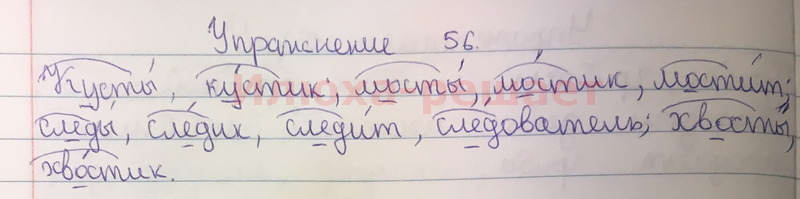 Упражнение 56.
Кусты, кустик; мосты, мостик, мостит;
следы, следик, следит, следователь; хвосты,
хвостик.
Илюха решает